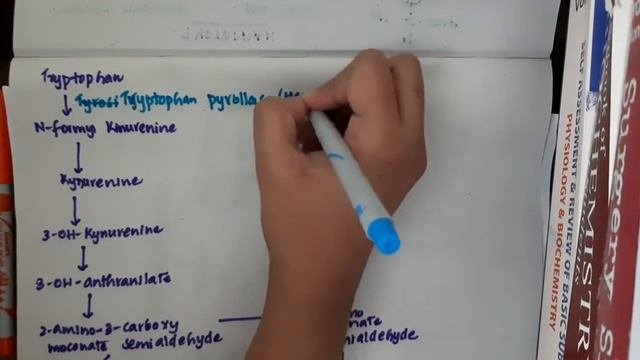 Tryptophan
Tyrosi Tryptophan pyrollase (He
N-formyl Kinurenine
Kynurenine
3-OH-Kynurenine
3-OH-anthranilate
2-amino-3-carboxy
moconate semialdehyde
no
nate
mialdehyde
SELF ASSESSMENT & REVIEW OF BASIC SU
PHYSIOLOGY & BIOCHEMISTRY
HEMISTR